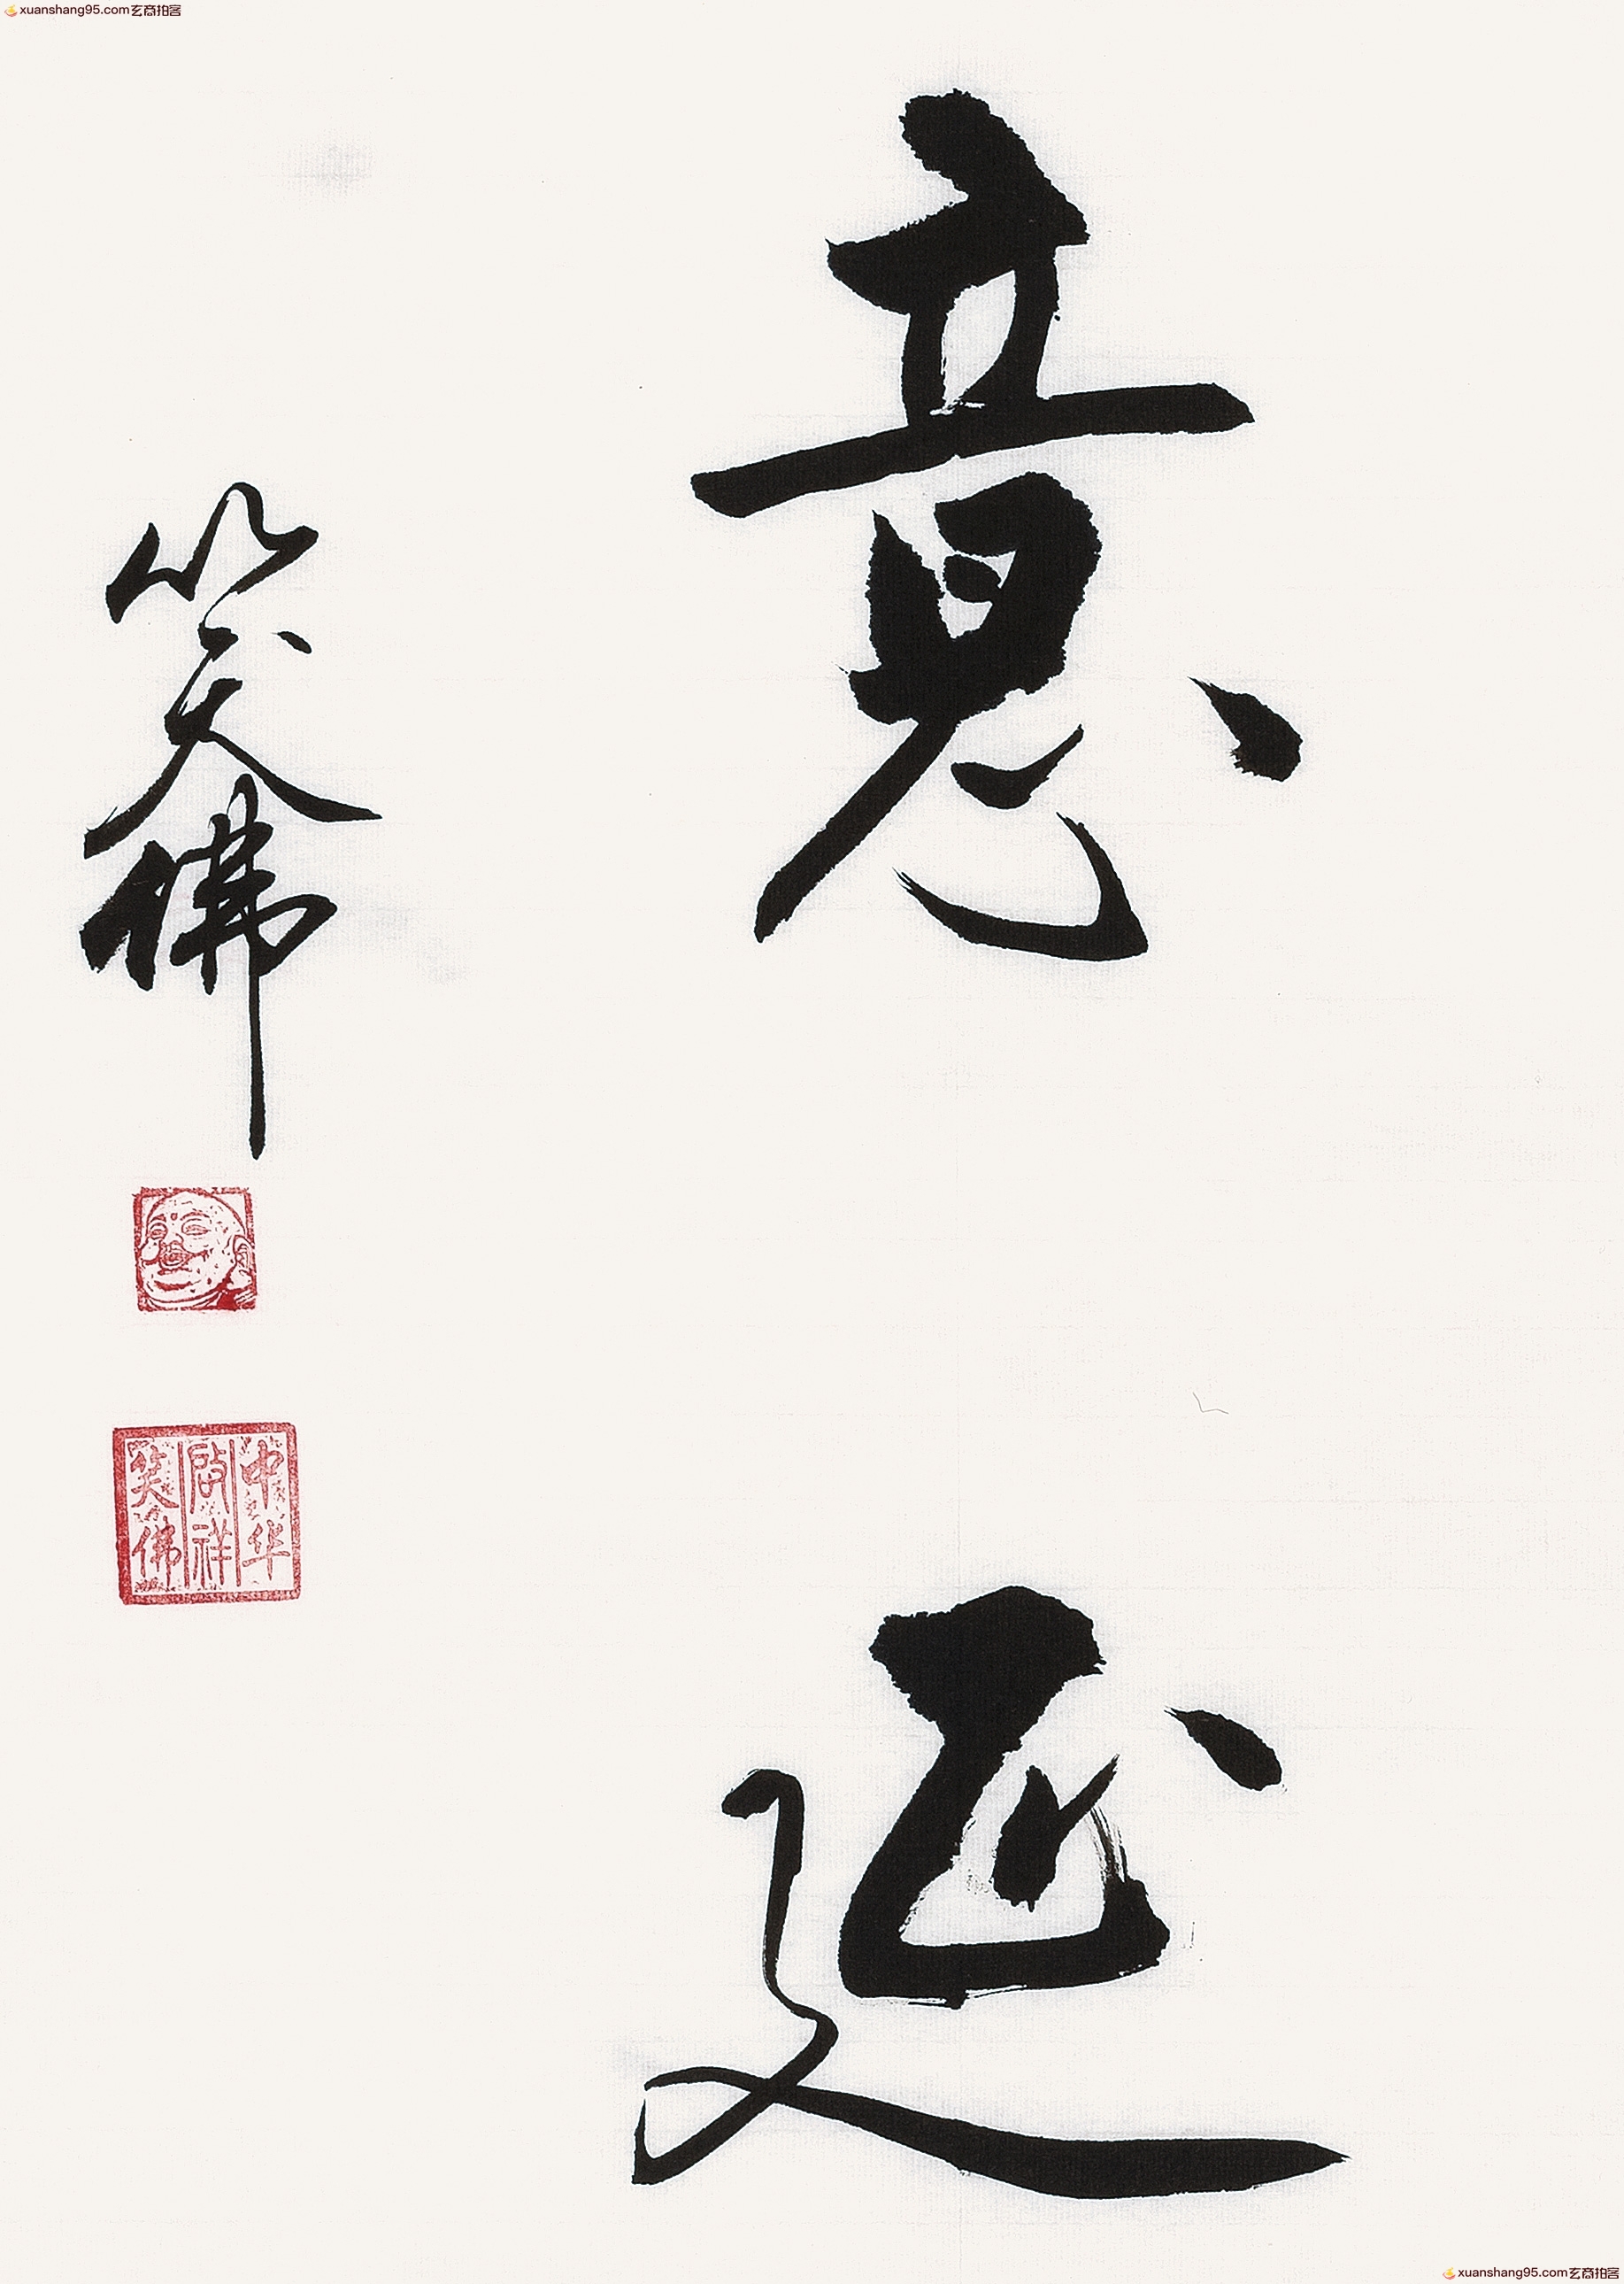 xuanshang95.com玄商拍客
意延
笑天佛
中华
啟祥
笑佛
xuanshang95.com玄商拍客